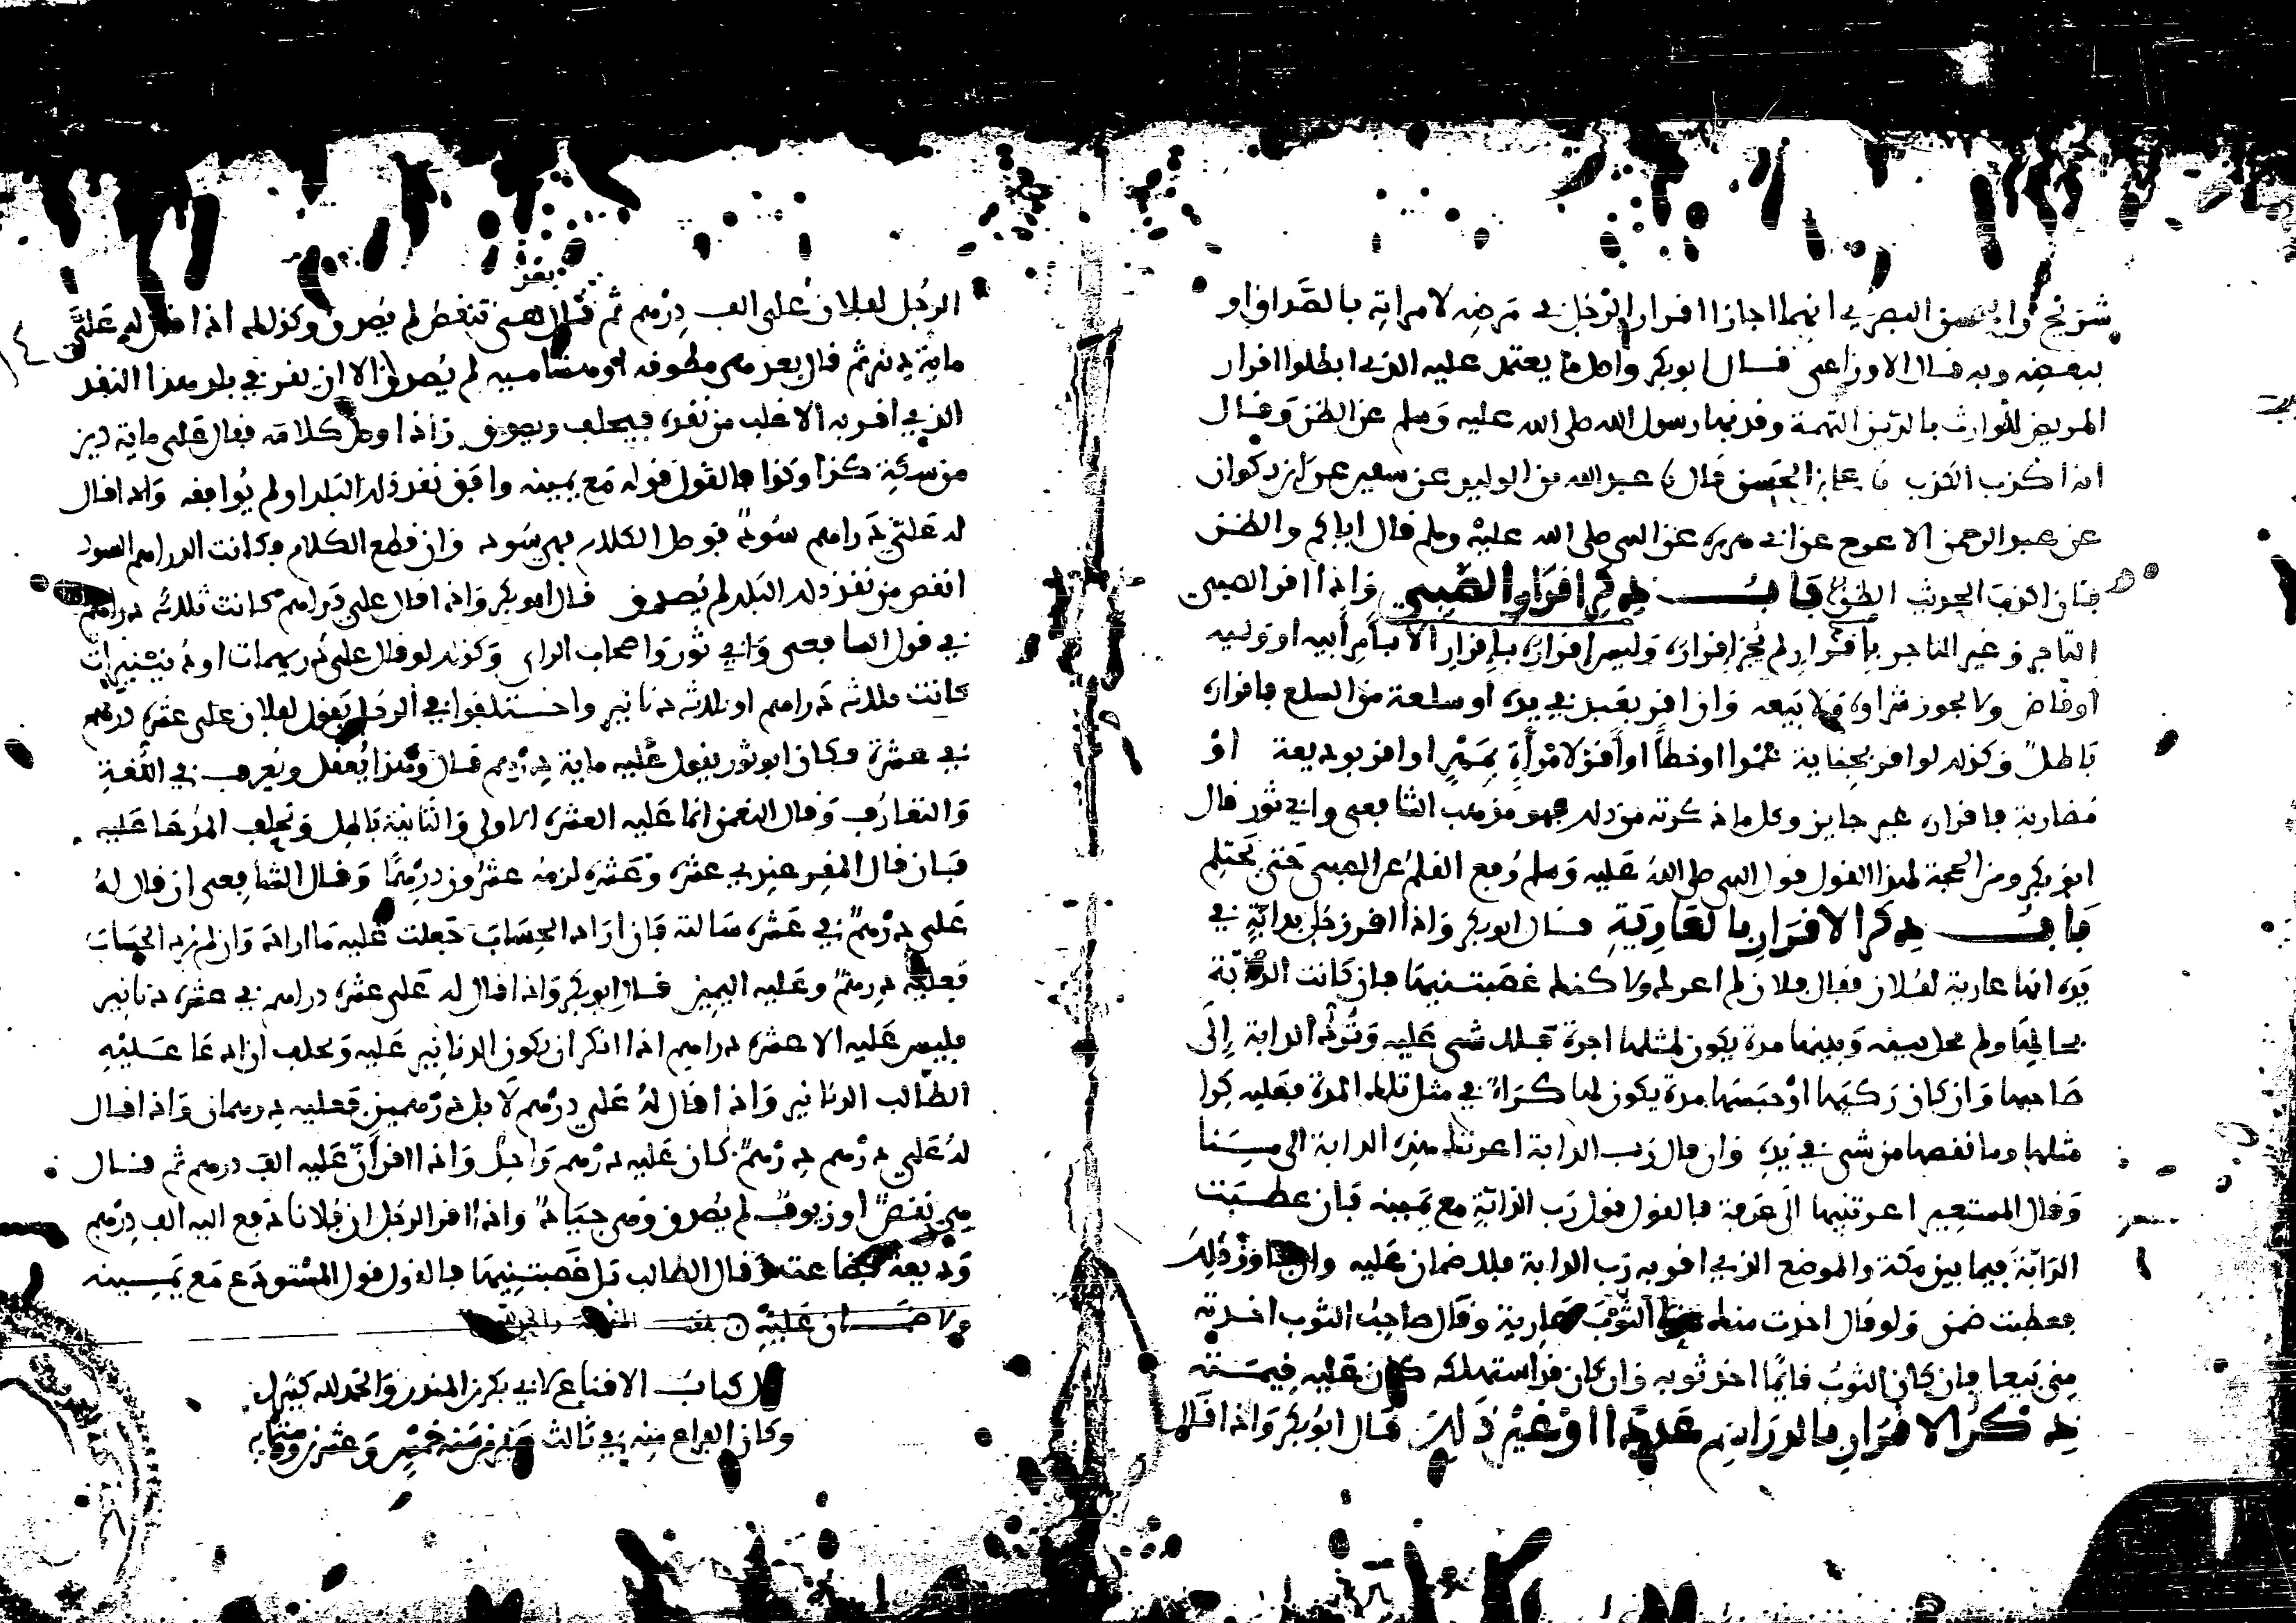 شريح والحسن البصري انهما اجازا اقرار الرجل في مرضه لامراته بالصداق او
ببعضه وبه قال الاوزاعي قال ابو بكر واصل ما يعتمل عليه الذي ابطلوا اقرار
المريض للوارث بالدين التهمة وقد نها رسول الله صلى الله عليه وسلم عن الظن وقال
انه اكذب الكذب الحسن قال عبد الله بن الوليد عن سفين عن ذكوان
عن عبد الرحمن الاعرج عن ابي هريرة عن النبي صلى الله عليه وسلم قال اياكم والظن
فان اكذب الحديث الظن باب ذكر اقرار الصبي واذا اقر الصبي
التاجر وغير التاجر باقرار لم يجز اقراره وليس اقراره باقرار الا بامر ابيه او وليه
او قاض ولا يجوز شراوه ولا بيعه وان اقر بعبد في يده او سلعة من السلع فاقراره
باطل وكذلك لو اقر بجناية عمدا او خطأ او اقر لامرأة بمهر او اقر بوديعة او
مضاربة فاقراره غير جايز وكل ما ذكرته من ذلك فهو مذهب الشافعي وابي ثور قال
ابو بكر ومن الحجة لهذا القول قول النبي صلى الله عليه وسلم رفع القلم عن الصبي حتى يحتلم
باب ذكر الاقرار بالعارية قال ابو بكر واذا اقر رجل بدابة في
يده انها عارية لفلان فقال فلان لم اعرك ولاكنك غصبتنيها فان كانت الدابة
بحالها ولم بينه وبينها مدة يكون لمثلها اجرة فلا شي عليه وترد الدابة الى
صاحبها وان كان ركبها او حبسها مدة يكون لها كراء في مثل تلك المدة فعليه كرا
مثلها وما نقصها من شي في يده وان قال رب الدابة اعرتك هذه الدابة الى
وقال المستعير اعرتنيها الى عرفة فالقول قول رب الدابة مع يمينه فان عطبت
الدابة فيما بين مكة والموضع الذي اقر به رب الدابة فلا ضمان عليه وان جاوز ذلك
فعطبت ضمن ولو قال اخذت منك هذا الثوب عارية وقال صاحب الثوب اخذته
مني بيعا فان كان الثوب قائما اخذ ثوبه وان كان قد استهلكه كان عليه قيمته
ذكر الاقرار بالدراهم عددا او غير ذلك قال ابو بكر واذا قال
الرجل لفلان على الف درهم ثم قال بعد هي تنقص لم يصدق وكذلك اذا قال له علي
ماية دينر ثم قال بعد هي مطوقه او لم يصدق الا ان يقر في بلد هذا النقد
الذي اقر به الاغلب من نقده فيحلف ويصدق واذا وصل كلامه فقال على ماية دينر
من سكة كذا وكذا فالقول قوله مع يمينه وافق نقد ذلك البلد او لم يوافقه واذا قال
له علي دراهم سود فوصل الكلام فهي سود وان قطع الكلام وكانت الدراهم السود
انقص من نقد ذلك البلد لم يصدق قال ابو بكر واذا قال علي دراهم كانت ثلاثه دراهم
في قول الشافعي وابي ثور واصحاب الراي وكذلك لو قال علي دريهمات او دنينيرات
كانت ثلاثه دراهم او ثلاثه دنانير واختلفوا في الرجل يقول لفلان على عشرة درهم
في عشرة فكان ابو ثور يقول عليه ماية درهم قال وهذا يعقل ويعرف في اللغة
والتعارف وقال النعمن انما عليه العشرة الاولى والثانية باطل ويحلف المدعا عليه
فان قال المقر عنيت عشرة وعشرة لزمه عشرون درهما وقال الشافعي ان قال له
علي درهم في عشرة سالته فان اراد الحساب جعلت عليه ما اراد وان لم يرد الحساب
فعليه درهم وعليه اليمين قال ابو بكر واذا قال له على عشرة دراهم في عشرة دنانير
فليس عليه الا عشرة دراهم اذا انكر ان يكون الدنانير عليه ويحلف ان ادعا عليه
الطالب الدنانير واذا قال له علي درهم لا بل درهمين فعليه درهمان واذا قال
له علي درهم درهم كان عليه درهم واحد واذا اقر ان عليه الف درهم ثم قال
هي نقص او زيوف لم يصدق وهي جياد واذا اقر الرجل ان فلانا دفع اليه الف درهم
وديعة فضاعت وقال الطالب بل غصبتنيها فالقول قول المستودع مع يمينه
ولا ضمان عليه
كتاب الاقناع لابي بكر بن المنذر والحمد لله كثيرا
وكان الفراغ منه في ثالث من سنة خمس وعشرين